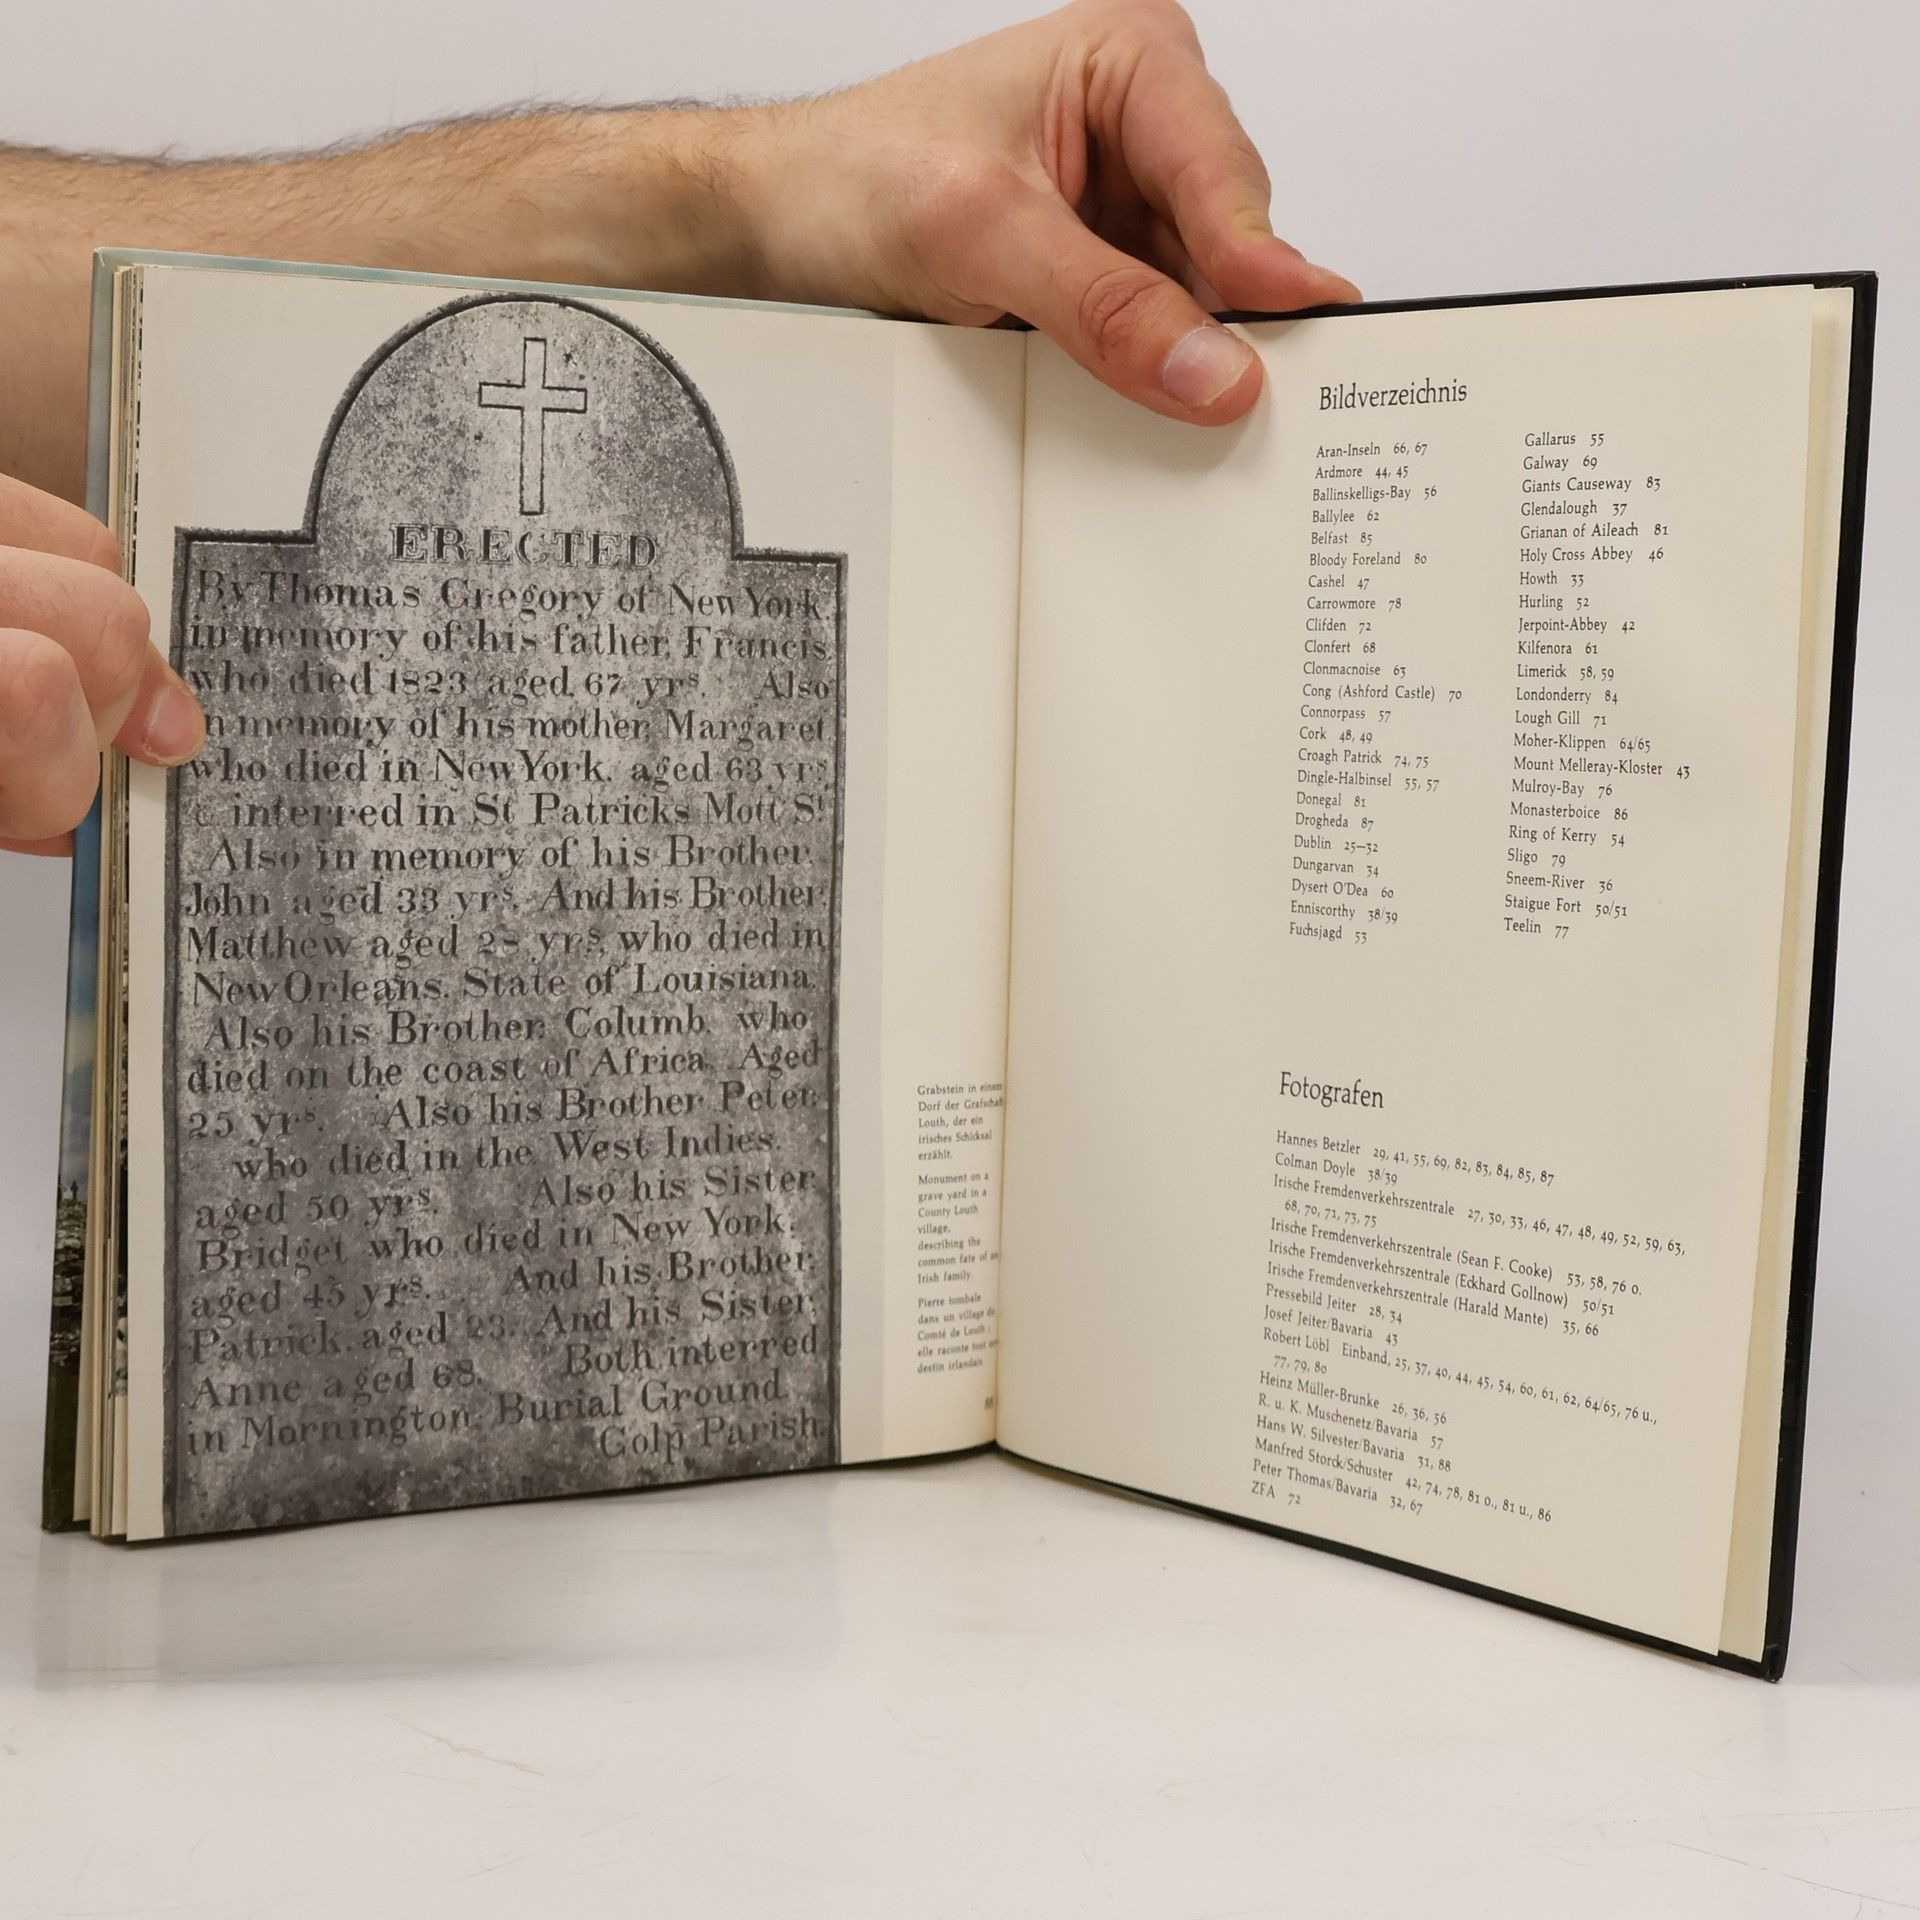 ERECTED
By Thomas Gregory of New York.
in memory of his father, Francis.
who died 1823 aged, 67 yrs. Also
n memory of his mother, Margaret.
who died in New York. aged 63 yrs
interred in St Patricks Mott St.
Also in memory of his Brother,
John aged 33 yrs. And his Brother,
Matthew aged yrs, who died in
New Orleans. State of Louisiana.
Also his Brother. Columb. who
died on the coast of Africa. Aged
25 yrs. Also his Brother Peter.
who died in the West Indies.
aged 50 yrs. Also his Sister
Bridget who died in New York.
aged 45 yrs. And his Brother,
Patrick. aged 23. And his Sister,
Anne aged 68. Both interred
in Mornington. Burial Ground.
Colp Parish.
Grabstein in einem
Dorf der Grafschaft
Louth, der ein
irisches Schicksal
erzählt.
Monument on a
grave yard in a
County Louth
village,
describing the
common fate of an
Irish family.
Pierre tombale
dans un village du
Comté de Louth :
elle raconte tout un
destin irlandais.
88
Bildverzeichnis
Aran-Inseln 66, 67
Ardmore 44, 45
Ballinskelligs-Bay 56
Ballylee 62
Belfast 85
Bloody Foreland 80
Cashel 47
Carrowmore 78
Clifden 72
Clonfert 68
Clonmacnoise 63
Cong (Ashford Castle) 70
Connorpass 57
Cork 48, 49
Croagh Patrick 74, 75
Dingle-Halbinsel 55, 57
Donegal 81
Drogheda 87
Dublin 25—32
Dungarvan 34
Dysert O'Dea 60
Enniscorthy 38/39
Fuchsjagd 53
Gallarus 55
Galway 69
Giants Causeway 83
Glendalough 37
Grianan of Aileach 81
Holy Cross Abbey 46
Howth 33
Hurling 52
Jerpoint-Abbey 42
Kilfenora 61
Limerick 58, 59
Londonderry 84
Lough Gill 71
Moher-Klippen 64/65
Mount Melleray-Kloster 43
Mulroy-Bay 76
Monasterboice 86
Ring of Kerry 54
Sligo 79
Sneem-River 36
Staigue Fort 50/51
Teelin 77
Fotografen
Hannes Betzler 29, 41, 55, 69, 82, 83, 84, 85, 87
Colman Doyle 38/39
Irische Fremdenverkehrszentrale 27, 30, 33, 46, 47, 48, 49, 52, 59, 63,
68, 70, 71, 73, 75
Irische Fremdenverkehrszentrale (Sean F. Cooke) 53, 58, 76 o.
Irische Fremdenverkehrszentrale (Eckhard Gollnow) 50/51
Irische Fremdenverkehrszentrale (Harald Mante) 35, 66
Pressebild Jeiter 28, 34
Josef Jeiter/Bavaria 43
Robert Löbl Einband, 25, 37, 40, 44, 45, 54, 60, 61, 62, 64/65, 76 u.,
77, 79, 80
Heinz Müller-Brunke 26, 36, 56
R. u. K. Muschenetz/Bavaria 57
Hans W. Silvester/Bavaria 31, 88
Manfred Storck/Schuster 42, 74, 78, 81 o., 81 u., 86
Peter Thomas/Bavaria 32, 67
ZFA 72